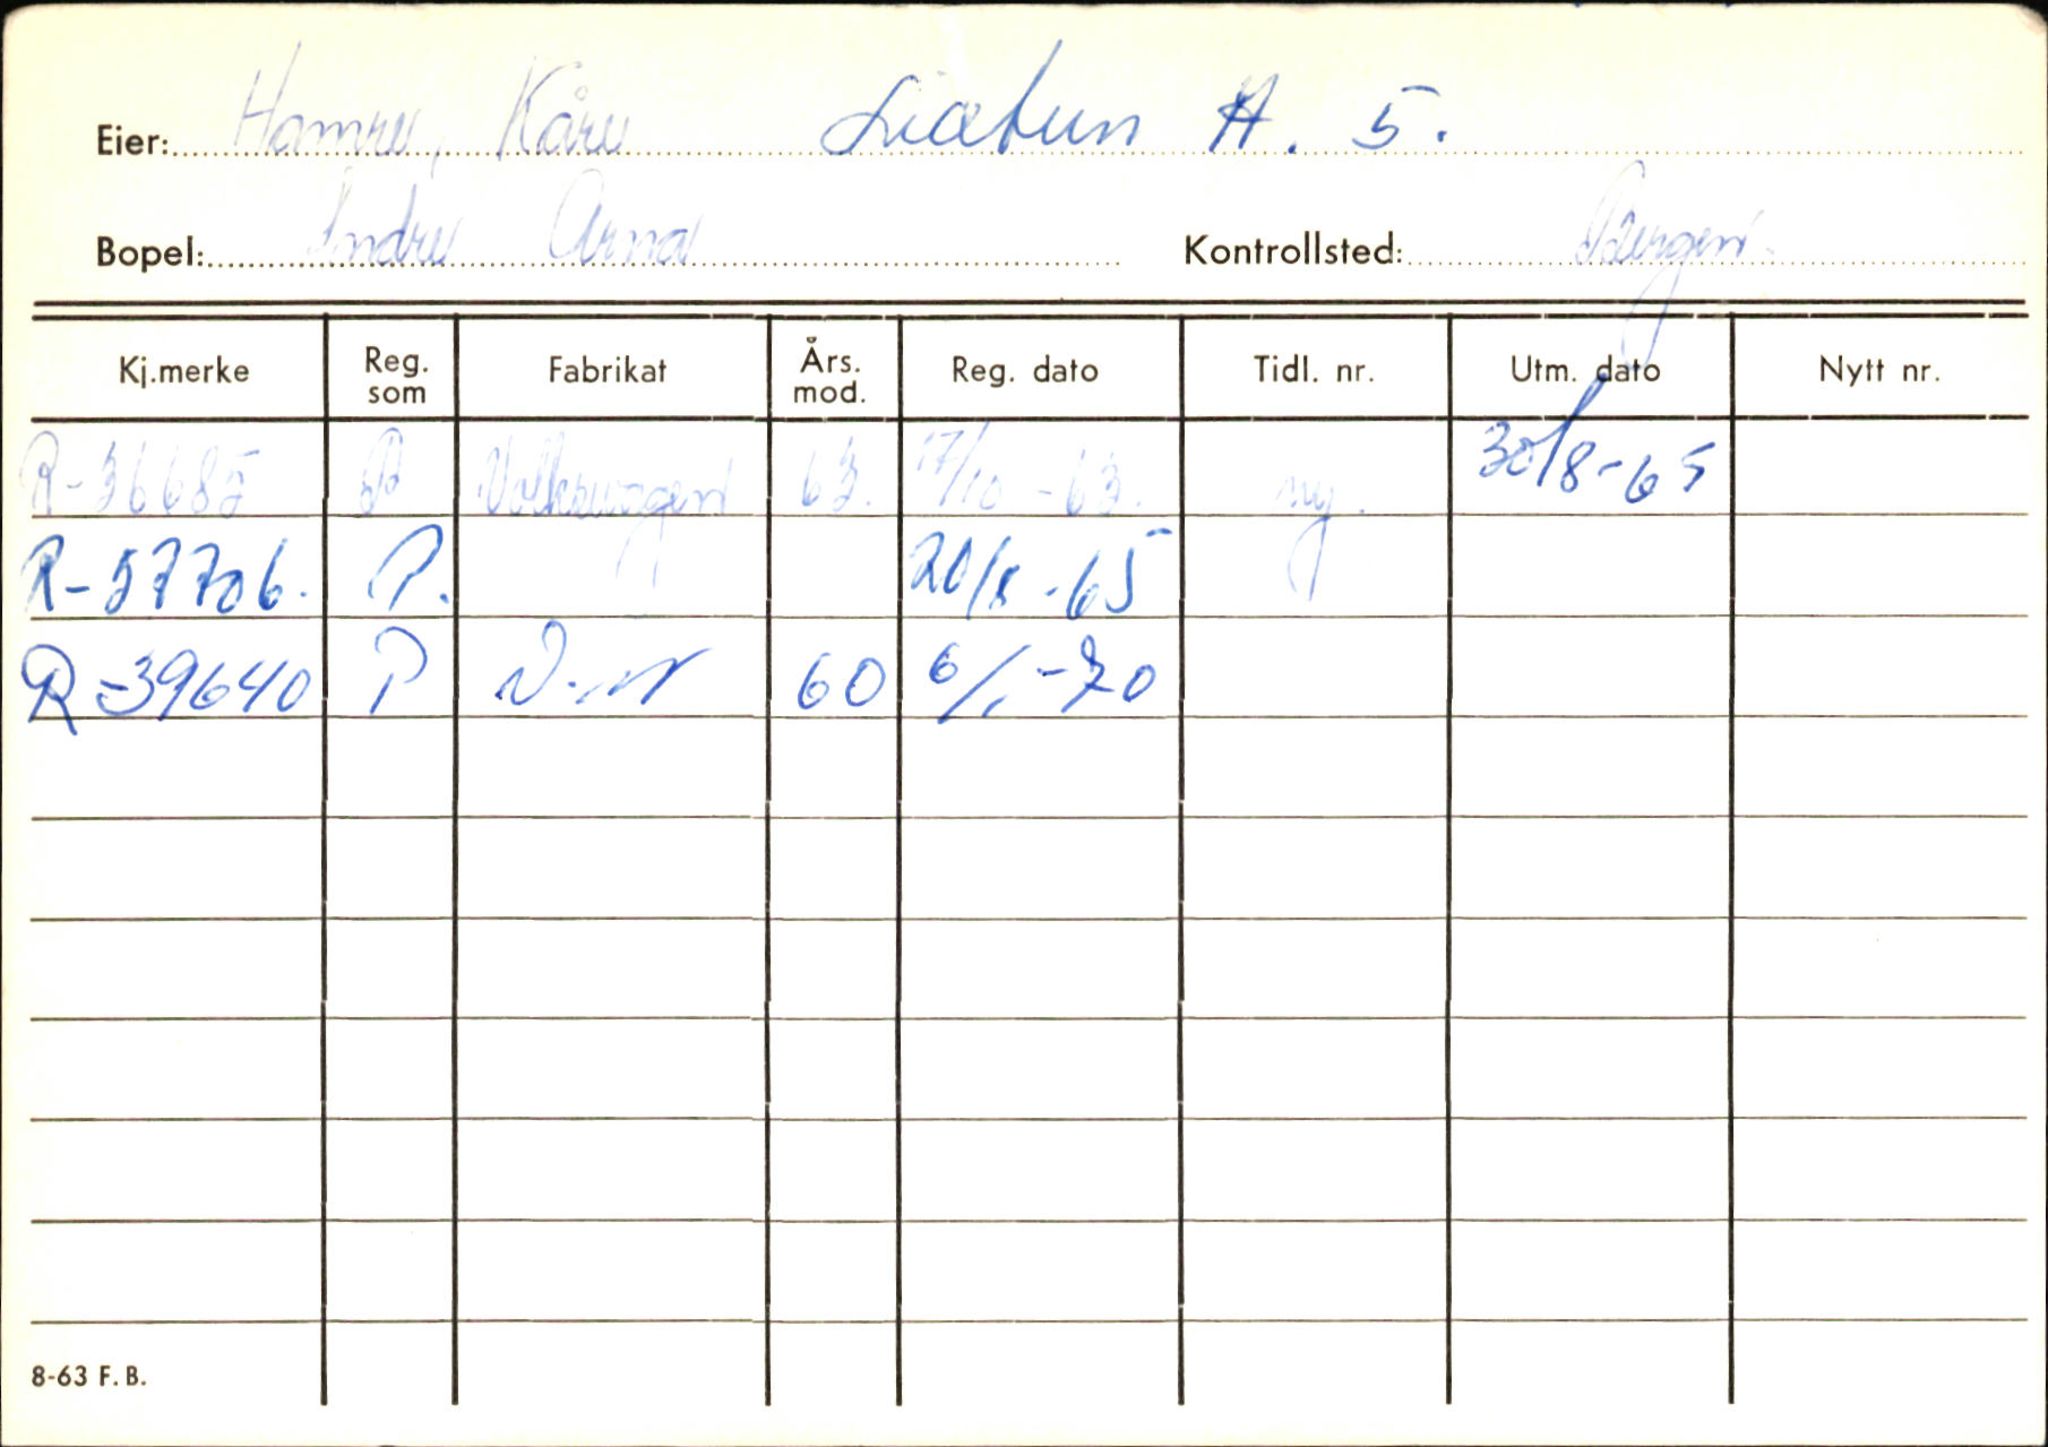 Eier: Hamre, Kåre Liatun A. 5.
Bopel: Indre Arna Kontrollsted: Bergen.
Kj.merke Reg. som Fabrikat Års. mod. Reg. dato Tidl. nr. Utm. dato Nytt nr.
R-36685 P Volkswagen 63. 17/10-63. ny. 30/8-65
R-57706. P. 20/8-65
R-39640 P 60 6/1-70
8-63 F.B.